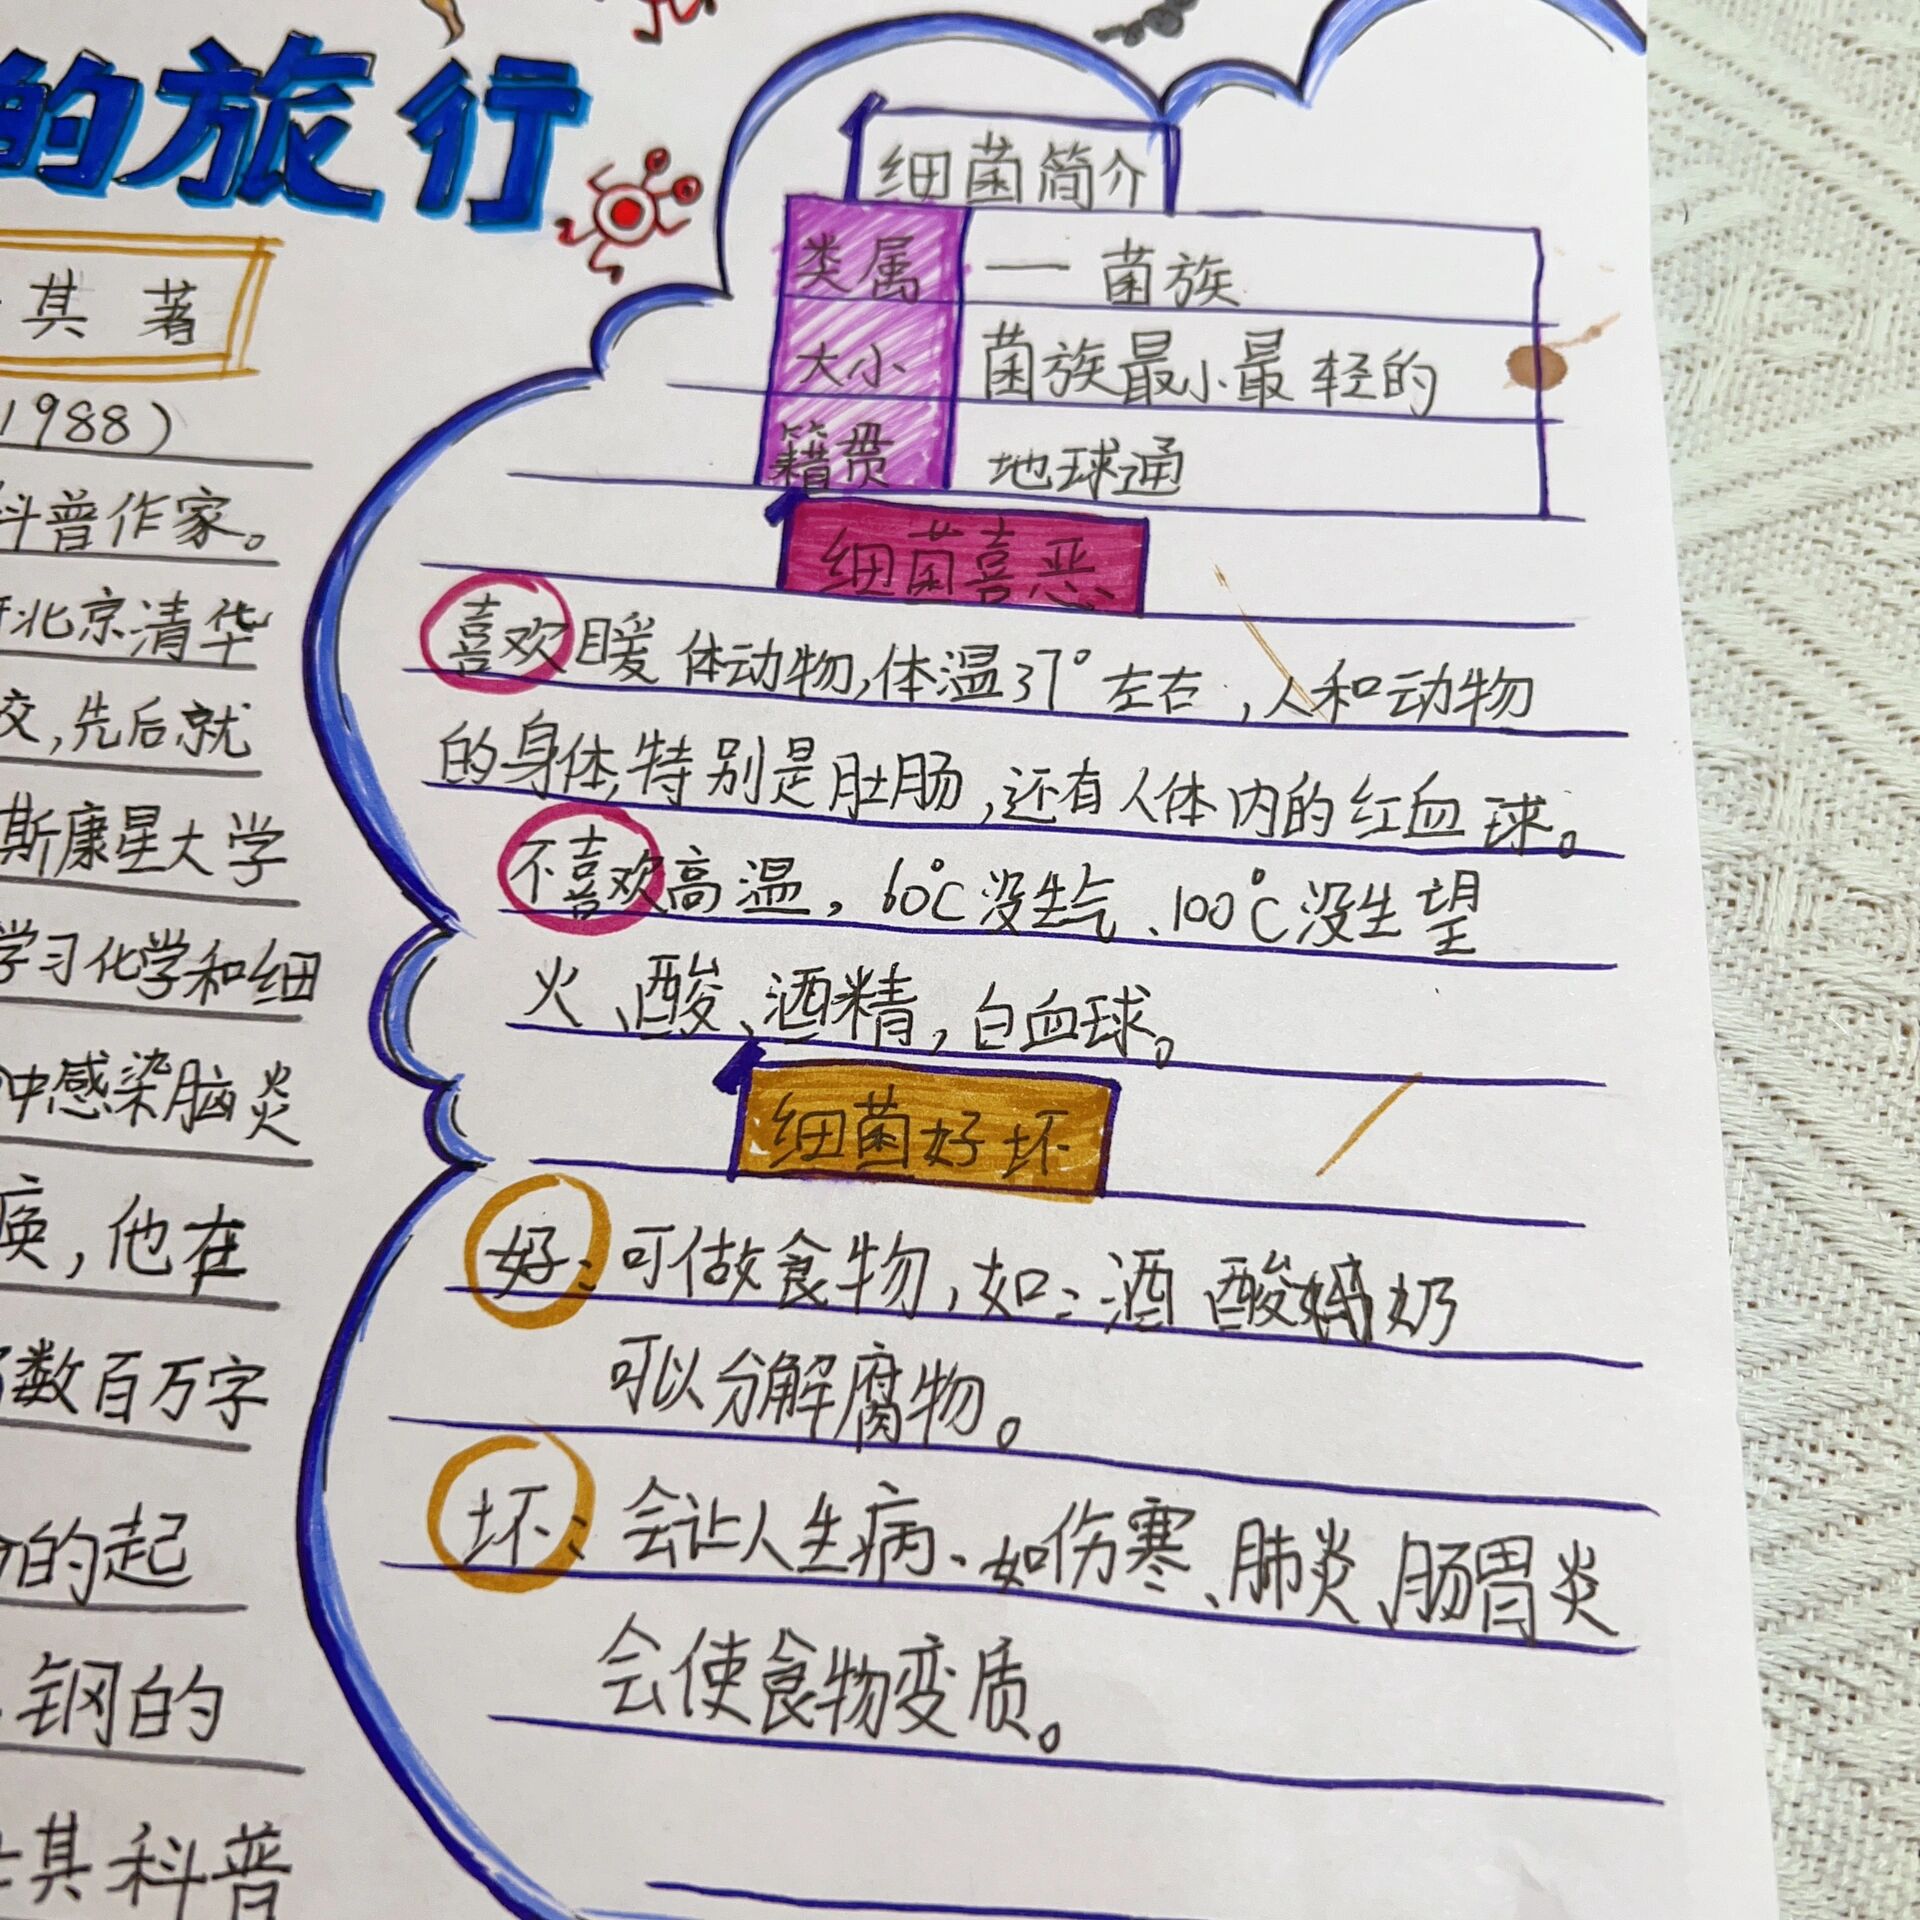 的旅行
其著
1988)
科普作家。
北京清华
校,先后就
斯康星大学
学习化学和细
中感染脑炎
痪,他在
数百万字
的起
钢的
其科普
细菌简介
类属 一菌族
大小 菌族最小最轻的
籍贯 地球通
细菌喜恶
喜欢暖体动物,体温37°左右,人和动物
的身体,特别是肚肠,还有人体内的红血球。
不喜欢高温,60℃没生气、100℃没生望
火、酸、酒精,白血球。
细菌好坏
好:可做食物,如:酒 酸奶
可以分解腐物。
坏:会让人生病、如伤寒、肺炎、肠胃炎
会使食物变质。